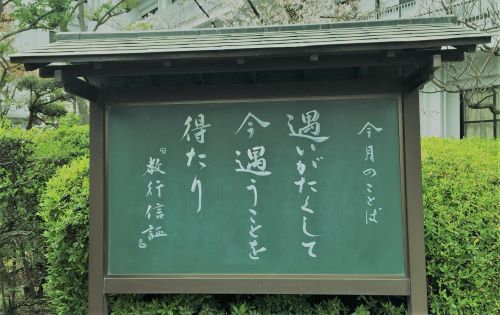 今月のことば
遇いがたくして
今遇うことを
得たり
『教行信証』